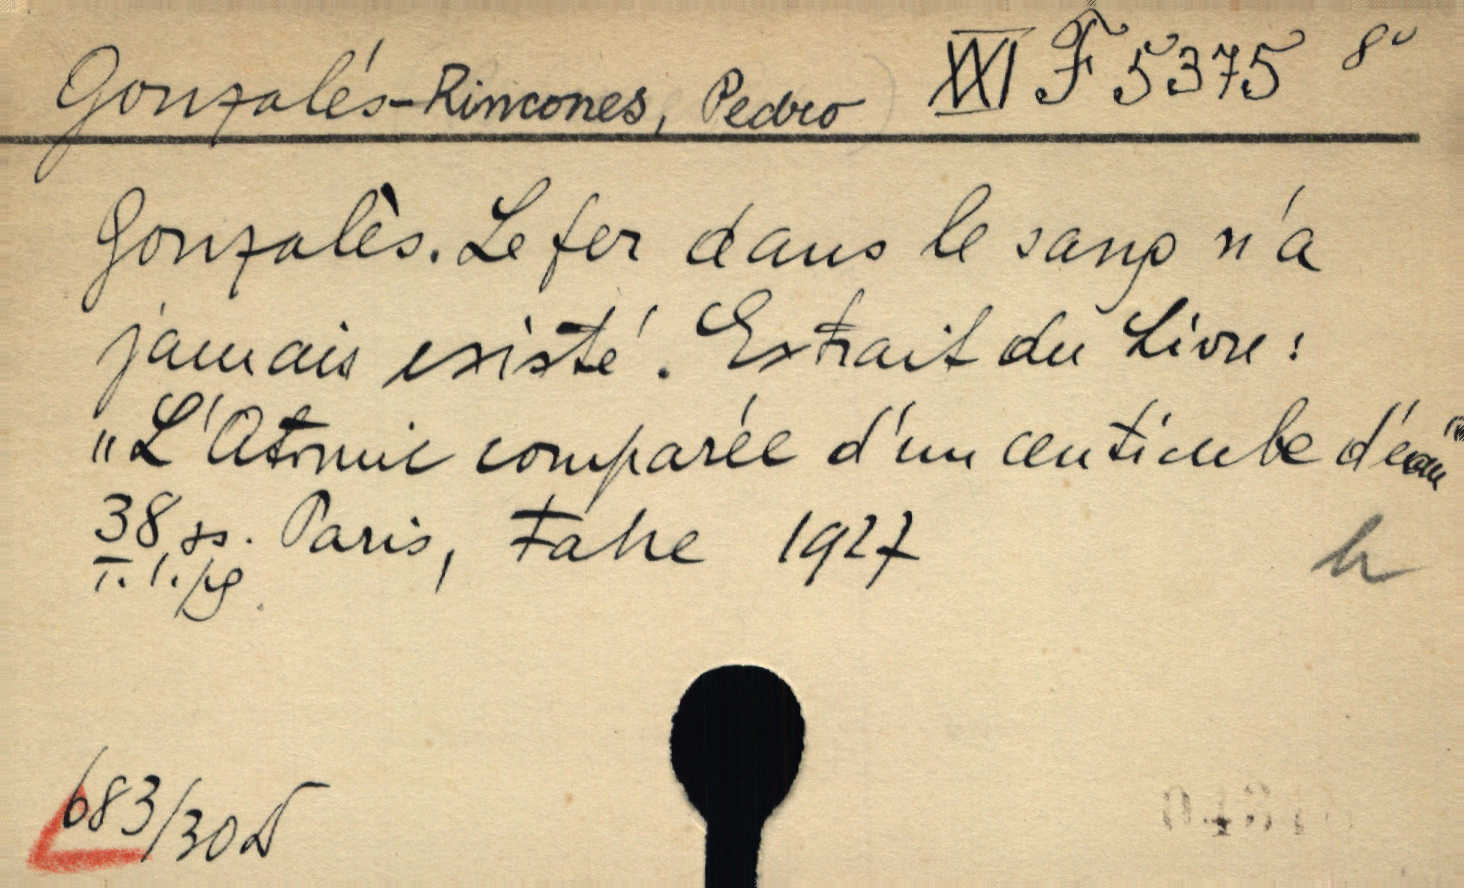 Gonzalés-Rincones, Pedro XXI F 5375 8°
Gonzalès. Le fer dans le sang n'a
jamais existé. Extrait du Livre:
"L'Atomie comparée d'un centicube d'eau"
38 ss. Paris, Fabre 1927
T. 1. pg.
h
683/30 D